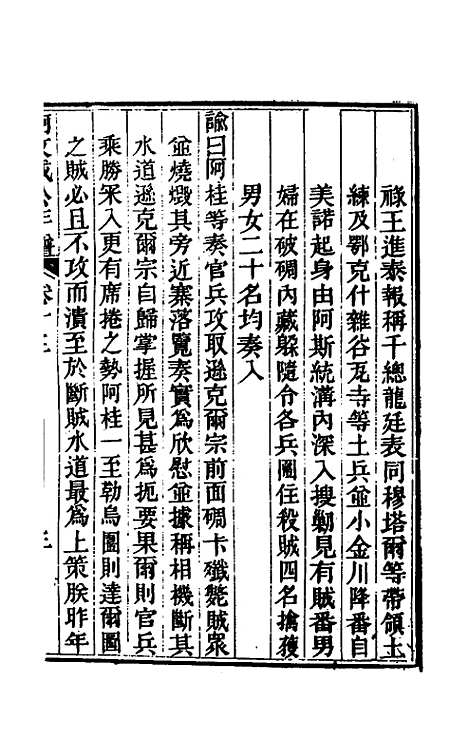 祿王進泰報稱千總龍廷表同穆塔爾等帶領土
練及鄂克什雜谷瓦寺等土兵並小金川降番自
美諾起身由阿斯統溝內深入搜勦見有賊番男
婦在破碉內藏躲隨令各兵圍住殺賊四名擒獲
男女二十名均奏入
諭曰阿桂等奏官兵攻取遜克爾宗前面碉卡殲斃賊眾
並燒燬其旁近寨落覽奏實為欣慰並據稱相機斷其
水道遜克爾宗自歸掌握所見甚為扼要果爾則官兵
乘勝罙入更有席捲之勢阿桂一至勒烏圍則達爾圖
之賊必且不攻而潰至於斷賊水道最為上策朕昨年
阿文成公年譜 卷十三 三